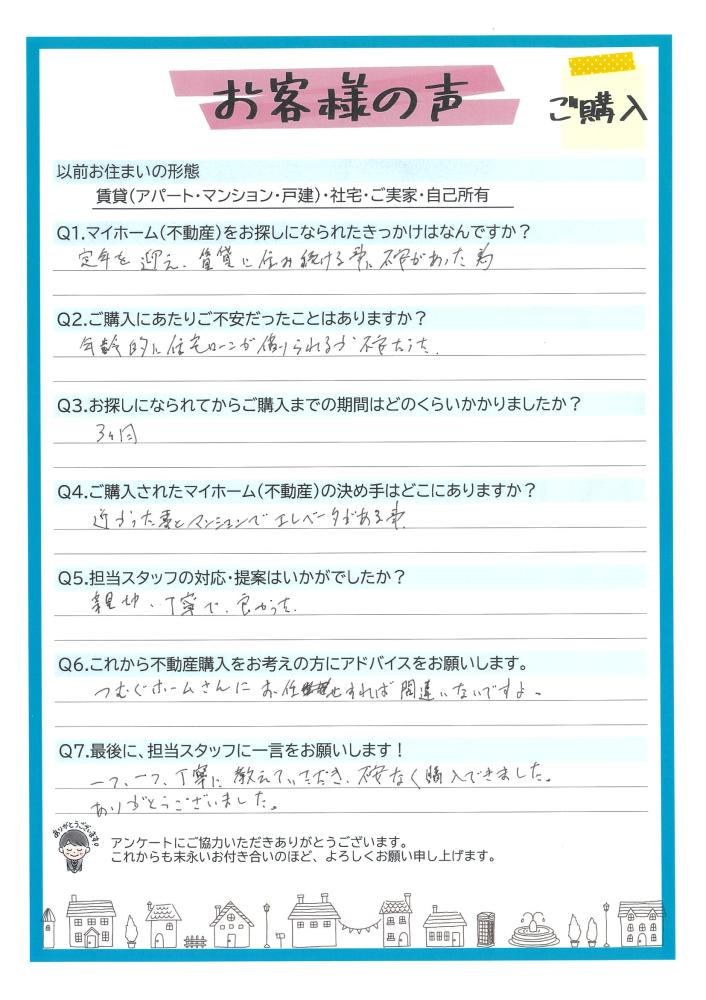 お客様の声
ご購入
以前お住まいの形態
賃貸(アパート・マンション・戸建)・社宅・ご実家・自己所有
Q1.マイホーム(不動産)をお探しになられたきっかけはなんですか？
定年を迎え、賃貸に住み続ける事に不安があった為
Q2.ご購入にあたりご不安だったことはありますか？
年齢的に住宅ローンが借りられるか不安だった。
Q3.お探しになられてからご購入までの期間はどのくらいかかりましたか？
3ヶ月
Q4.ご購入されたマイホーム(不動産)の決め手はどこにありますか？
近かった事とマンションでエレベータがある事。
Q5.担当スタッフの対応・提案はいかがでしたか？
親切、丁寧で、良かった。
Q6.これから不動産購入をお考えの方にアドバイスをお願いします。
つむぐホームさんにお任せすれば間違いないですよ。
Q7.最後に、担当スタッフに一言をお願いします！
一つ、一つ、丁寧に教えていただき、不安なく購入できました。
ありがとうございました。
ありがとうございます。
アンケートにご協力いただきありがとうございます。
これからも末永いお付き合いのほど、よろしくお願い申し上げます。